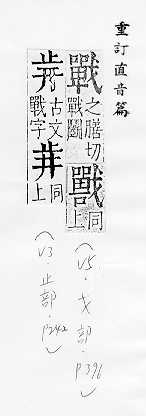 重訂直音篇
戰 之膳切
戰鬭
同上
古文
戰字
同上
(V5.戈部.P396)
(V3.止部.P242)